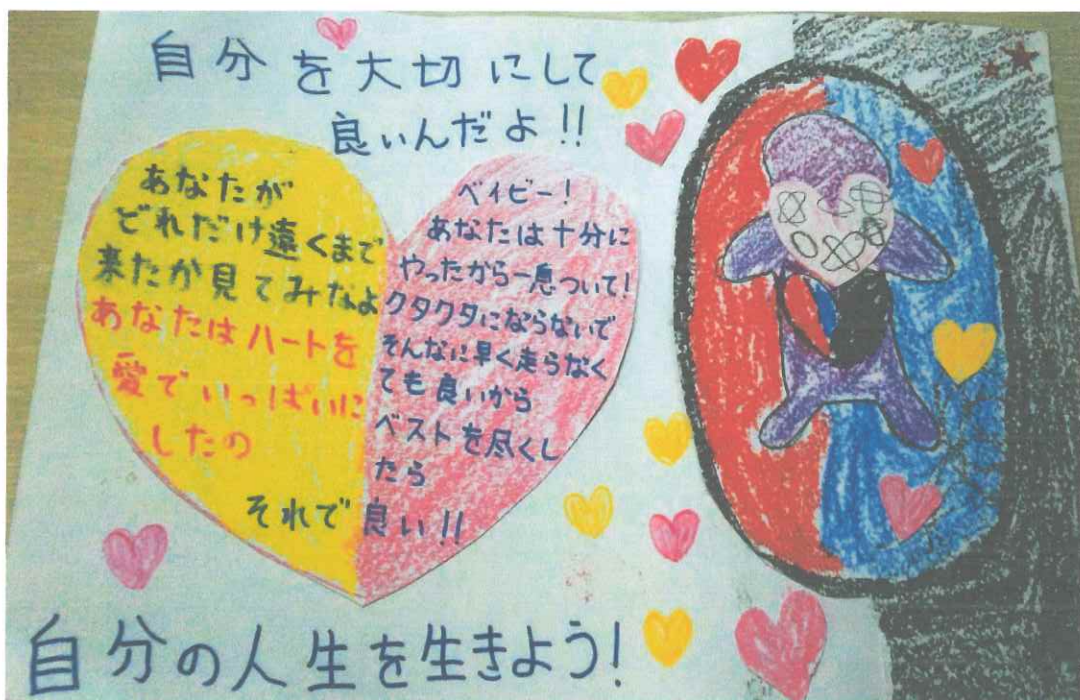 自分を大切にして
良いんだよ!!
あなたが
どれだけ遠くまで
来たか見てみなよ
あなたはハートを
愛でいっぱいに
したの
ベイビー!
あなたは十分に
やったから一息ついて!
クタクタにならないで
そんなに早く走らなく
ても良いから
ベストを尽くし
たら
それで良い!!
自分の人生を生きよう!